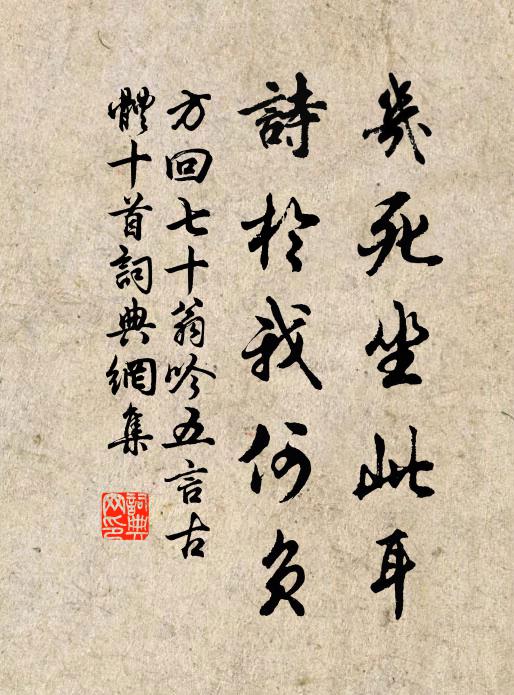 幾死坐此耳
詩於我何負
方回七十翁吟五言古
體十首詞典網集
詞典
网印